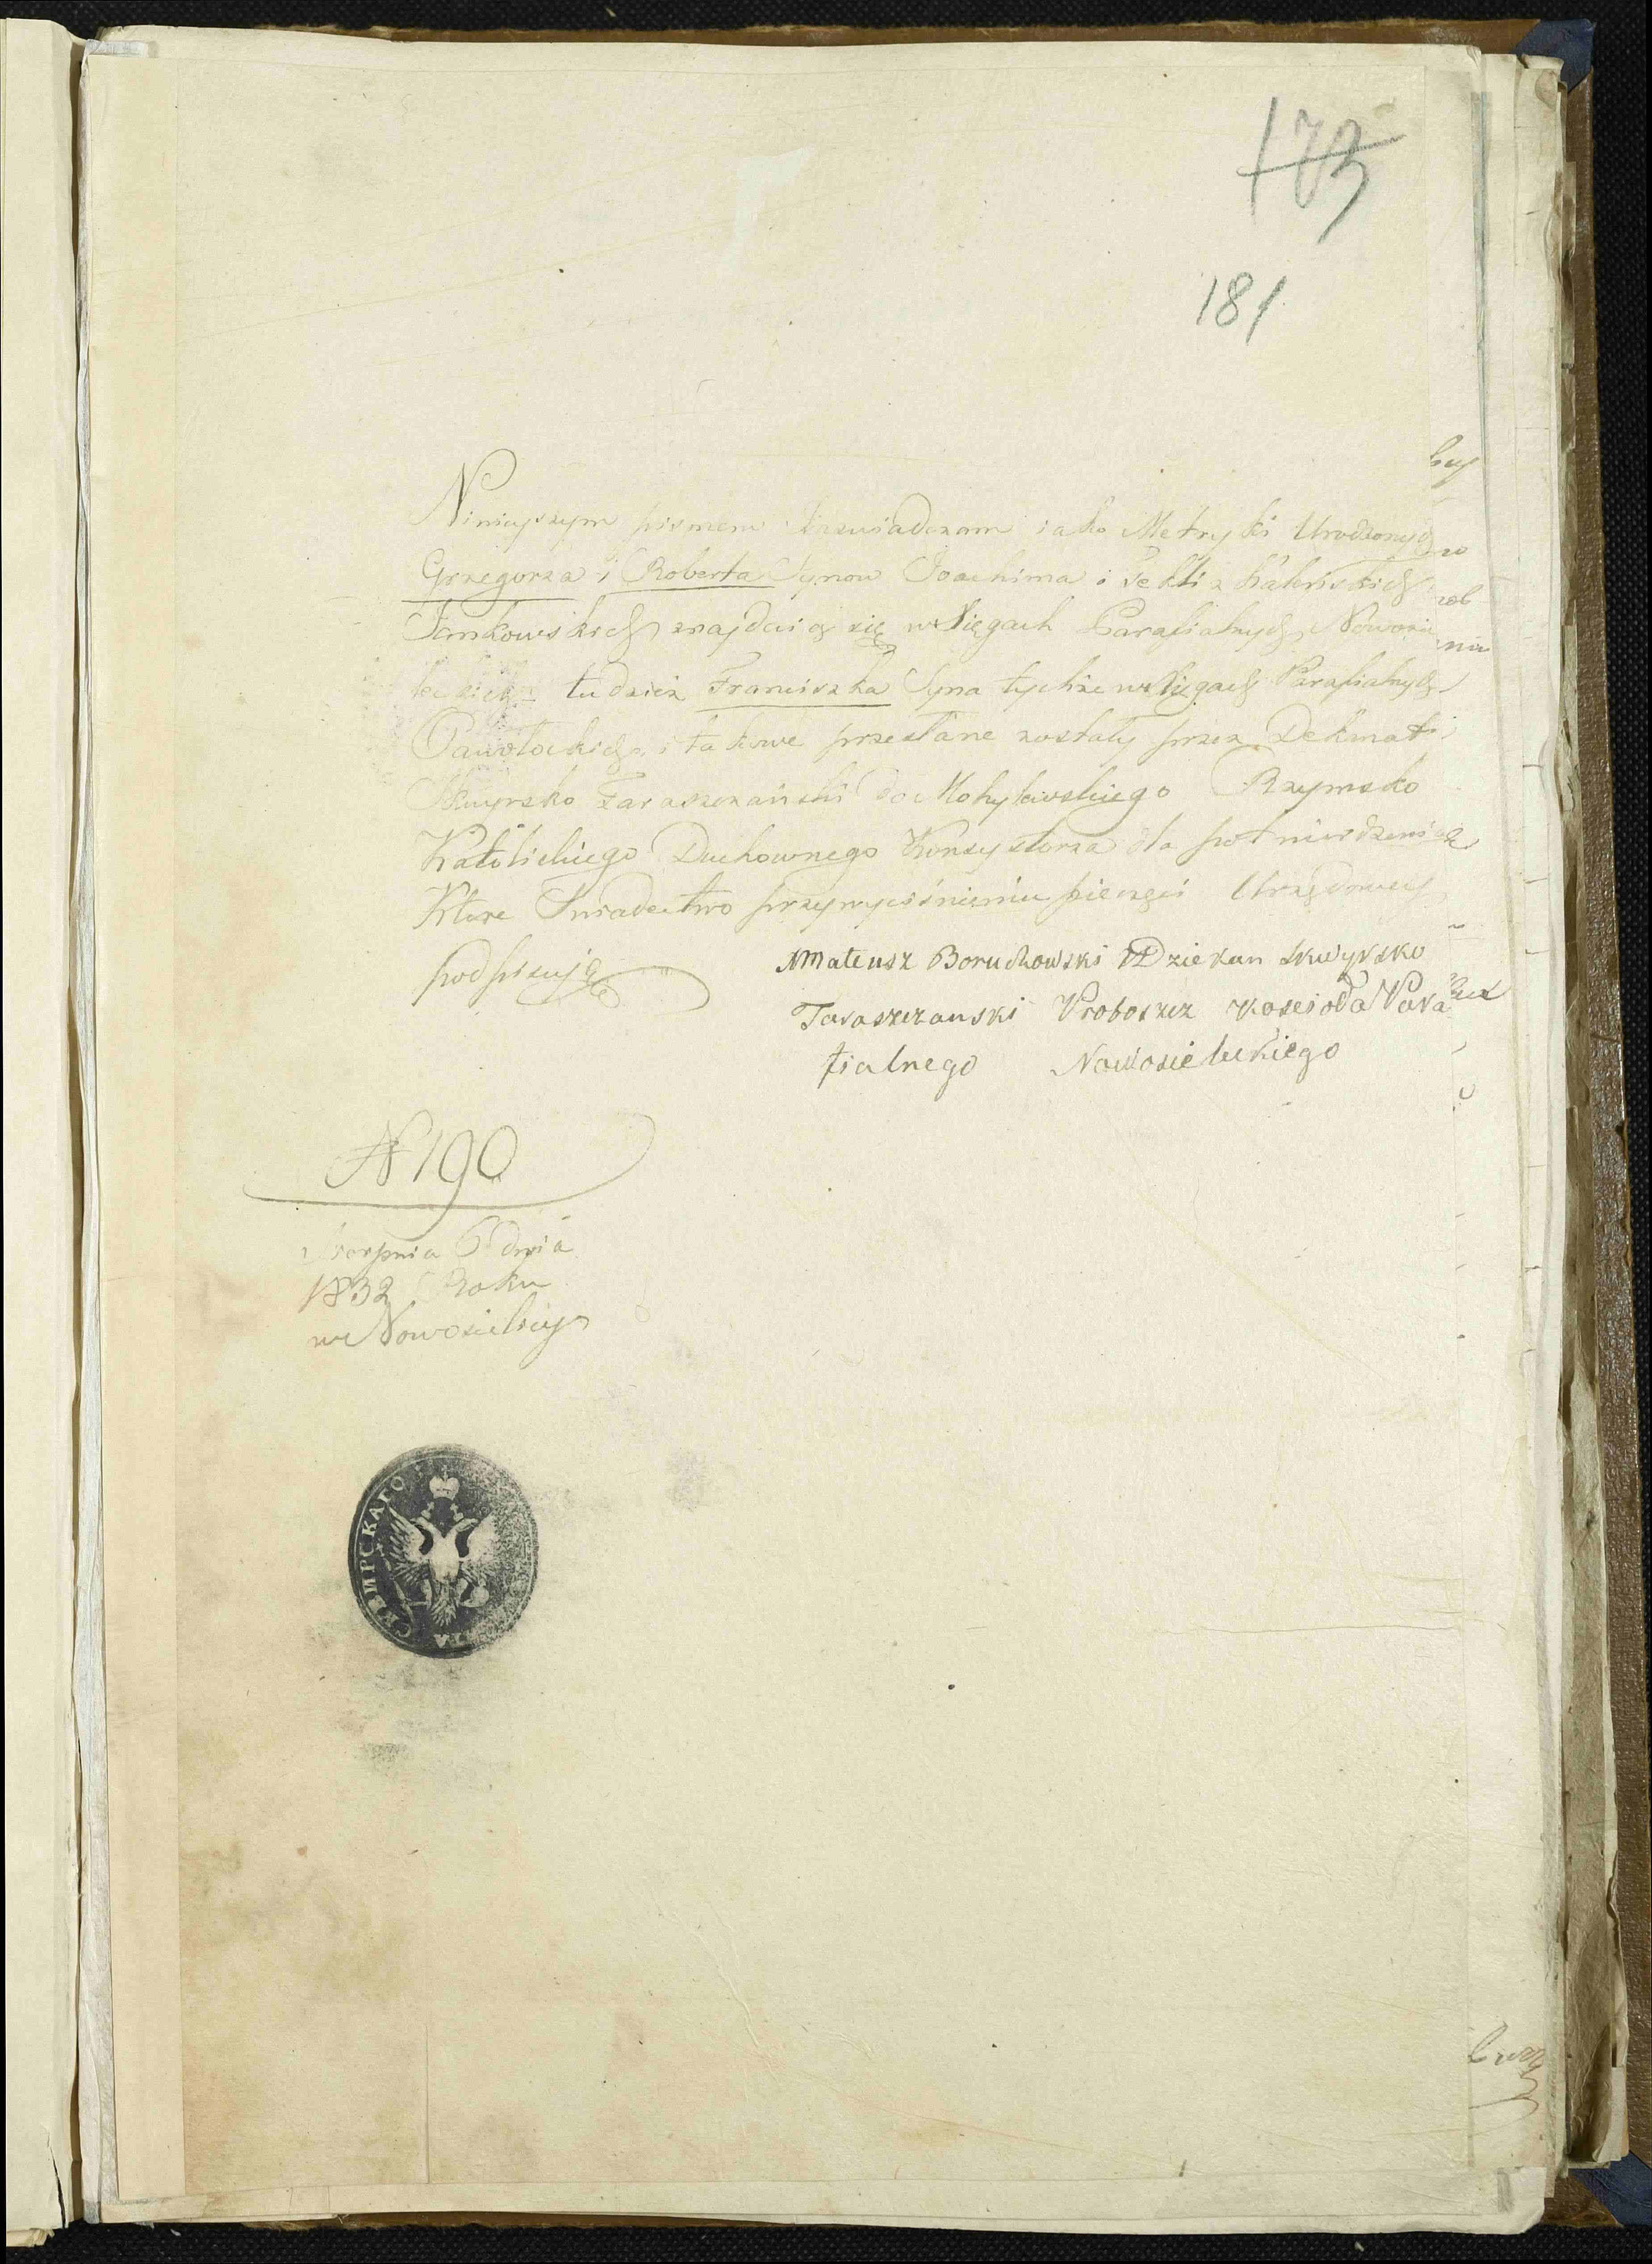 173
181
Ninieyszym pismem zaswiadczam iako Metryki Urodzonych
Grzegorza i Roberta Synow Joachima i Tekli z
Jankowskich znajduią się w Xięgach Parafialnych Nowosie
leckich tudzież Franciszka Syna tychże w Xięgach Parafialnych
Pawołockich, i takowe przesłane zostały przez Dekanat
Skwyrsko Taraszczański do Mohylewskiego Rzymsko
Katolickiego Duchownego Konsystorza dla potwierdzenia
Które Swiadectwo przy wyciśnieniu pieczęci Urzędowey
podpisuję
Mateusz Boruchowski Dziekan Skwyrsko
Taraszczanski Proboszcz Koscioła Para
fialnego Nowosieleckiego
N 190
Sierpnia 6 dnia
1832 Roku
w Nowosielicy
СКВИРСКАГО